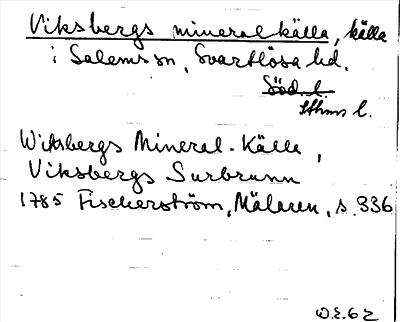 Viksbergs mineralkälla, källa
i Salems sn, Svartlösa hd.
Söd. l.
Sthms l.
Wiksbergs Mineral-Källa,
Viksbergs Surbrunn
1785 Fischerström, Mälaren, s. 336
W.E. 62